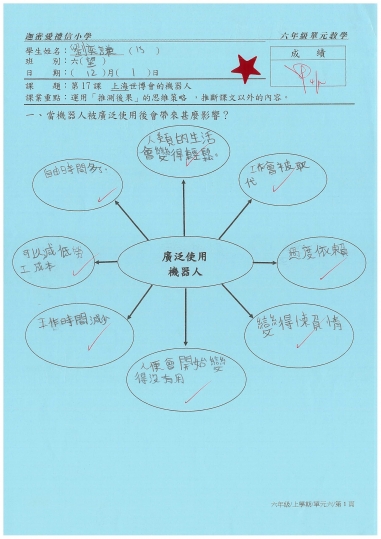 迦密愛禮信小學 六年級單元教學
學生姓名： (13)
班 別：六(望) 成 績
日 期：( 12 )月( 1 )日
課 題：第17課 上海世博會的機器人
課業重點：運用「推測後果」的思維策略，推斷課文以外的內容。
一、當機器人被廣泛使用後會帶來甚麼影響？
人類的生活
會變得輕鬆。
自由時間多了
工作會被取
代
可以減低勞
工成本
廣泛使用
機器人
過度依賴
工作時間減少
變得沒責情
人便會開始變
得沒有用
六年級/上學期/單元六/第1頁